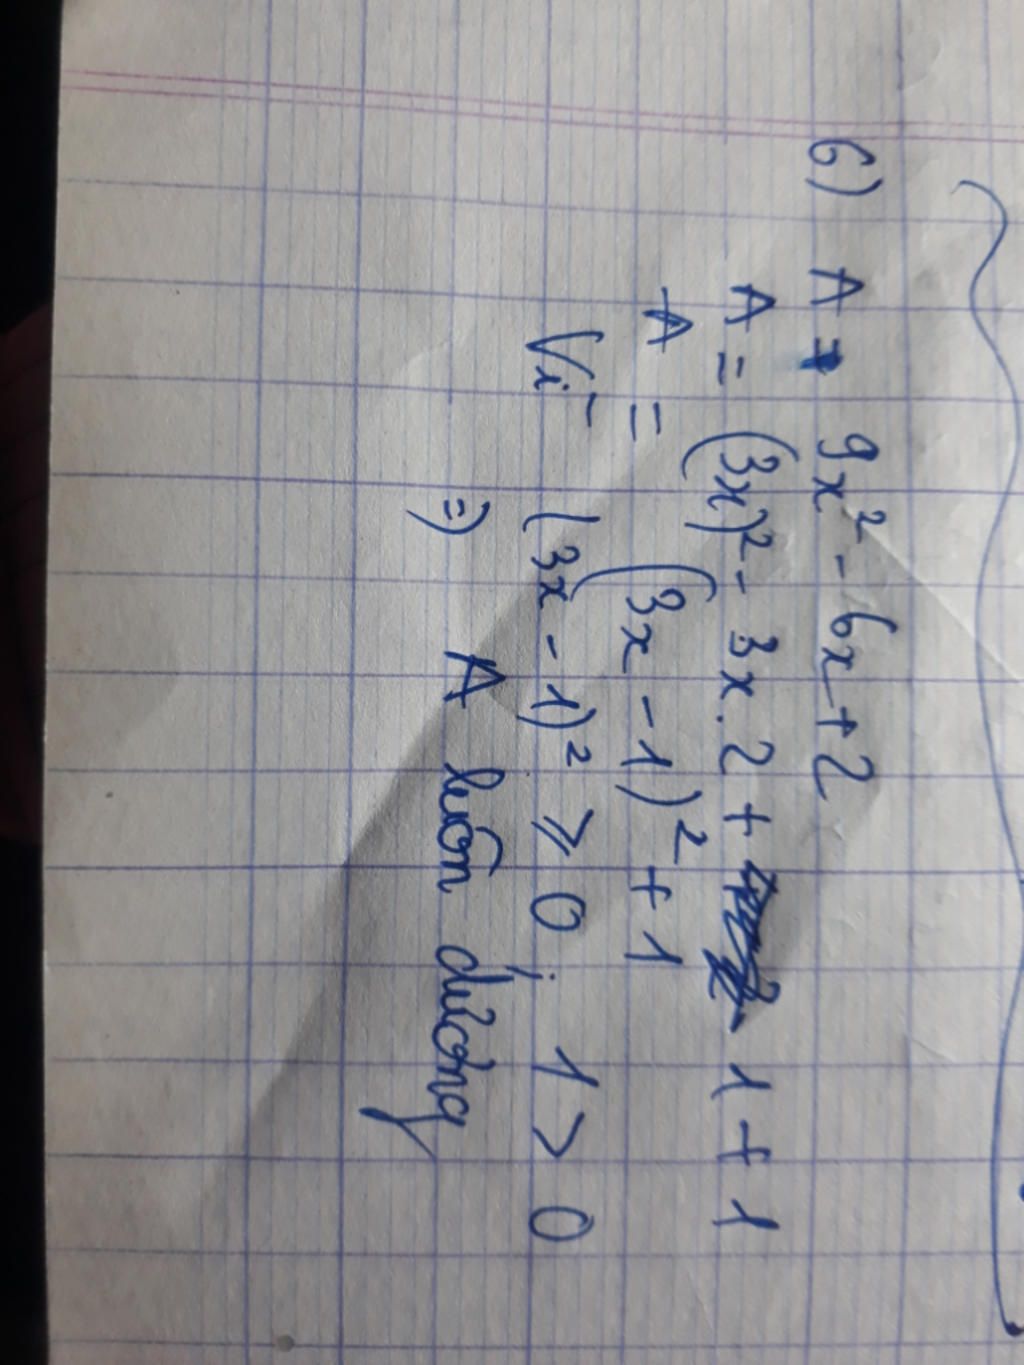 6) A = 9x² - 6x + 2
A = (3x)² - 3x.2 + 1 + 1
A = (3x - 1)² + 1
Vì (3x - 1)² ⩾ 0 ; 1 > 0
=) A luôn dương